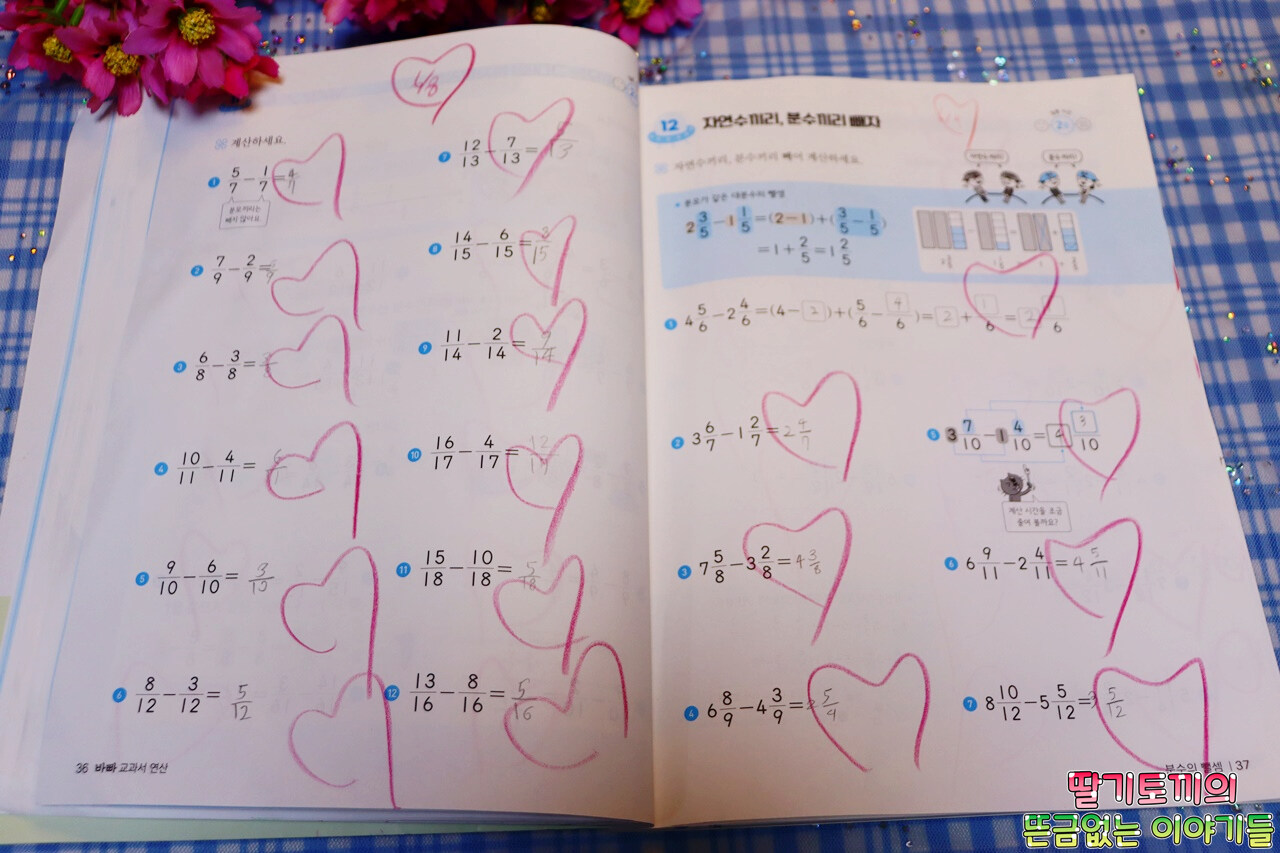 4/8
계산하세요.
1 5/7 - 1/7 = 4/7
분모끼리는
빼지 않아요
2 7/9 - 2/9 =
3 6/8 - 3/8 =
4 10/11 - 4/11 =
5 9/10 - 6/10 = 3/10
6 8/12 - 3/12 = 5/12
7 12/13 - 7/13 =
8 14/15 - 6/15 =
9 11/14 - 2/14 =
10 16/17 - 4/17 =
11 15/18 - 10/18 = 5/18
12 13/16 - 8/16 = 5/16
36 바빠 교과서 연산
12 자연수끼리, 분수끼리 빼자
자연수끼리, 분수끼리 빼어 계산하세요.
분모가 같은 대분수의 뺄셈
2 3/5 - 1 1/5 = (2 - 1) + (3/5 - 1/5)
= 1 + 2/5 = 1 2/5
1 4 5/6 - 2 4/6 = (4 - 2) + (5/6 - 4/6) = 2 + 1/6 = 2 /6
2 3 6/7 - 1 2/7 = 2 4/7
3 7 5/8 - 3 2/8 = 4 3/8
4 6 8/9 - 4 3/9 = 5/
5 3 7/10 - 1 4/10 = 3/10
계산 시간을 조금
줄여 볼까요?
6 6 9/11 - 2 4/11 = 4 5/11
7 8 10/12 - 5 5/12 = 3 5/12
분수의 뺄셈 37
딸기토끼의
뜬금없는 이야기들